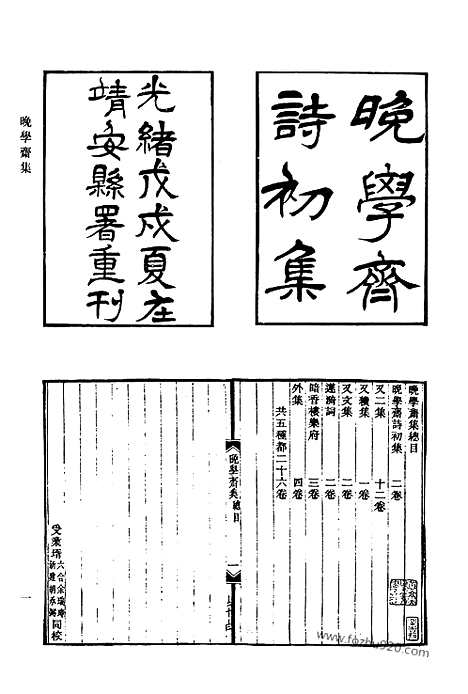 晚學齋
詩初集
光緒戊戌夏在
靖安縣署重刊
晚學齋集
晚學齋集總目
晚學齋詩初集 二卷
又二集 十二卷
又續集 一卷
又文集 二卷
蓮漪詞 二卷
暗香樓樂府 三卷
外集 四卷
共五種都二十六卷
晚學齋集總目 一
受業壻
六合余瑞
新建胡承
同校
一
www.fozhu920.com